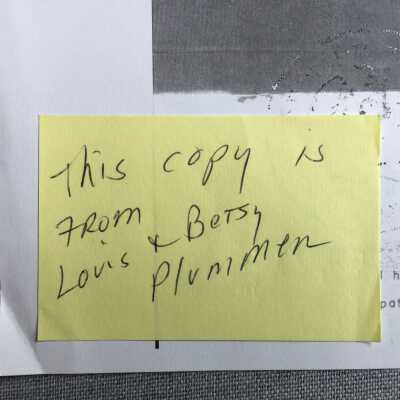 This copy is
From
Louis & Betsy
Plummer
h
pat